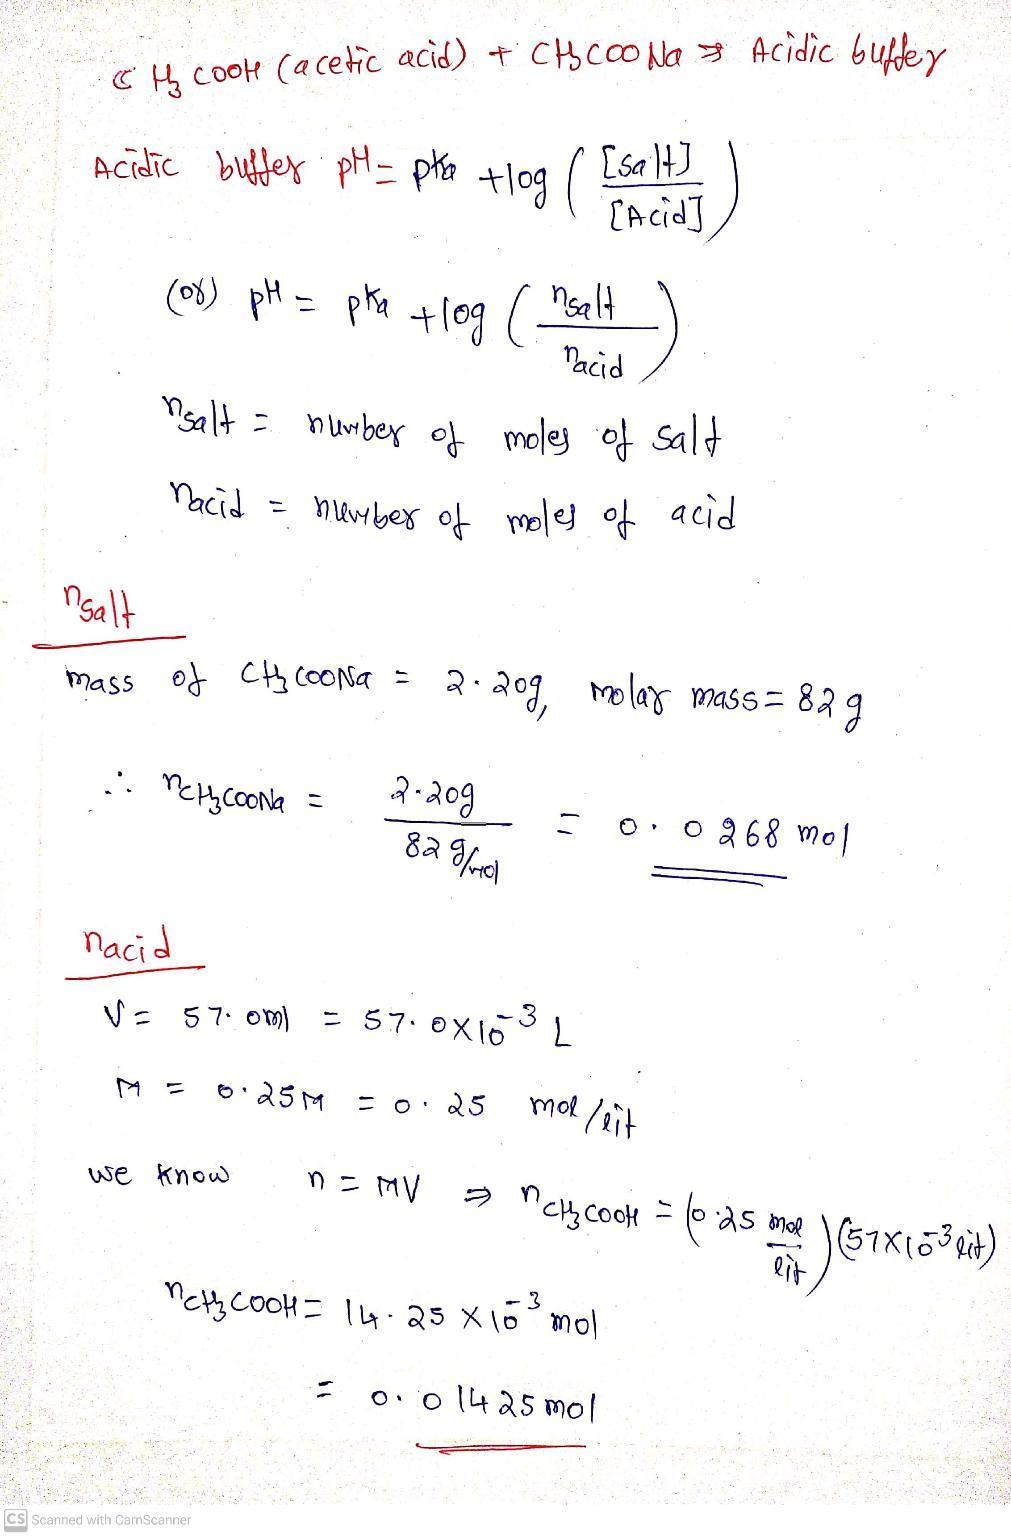 CH3COOH (acetic acid) + CH3COONa ⇒ Acidic buffer
Acidic buffer pH = pKa + log ([salt]/[Acid])
(or) pH = pKa + log (nsalt/nacid)
nsalt = number of moles of salt
nacid = number of moles of acid
nsalt
mass of CH3COONa = 2.20g, molar mass = 82 g
∴ nCH3COONa = 2.20g / 82 g/mol = 0.0268 mol
nacid
V = 57.0ml = 57.0×10⁻³ L
M = 0.25M = 0.25 mol/lit
we know n = MV ⇒ nCH3COOH = (0.25 mol/lit)(57×10⁻³ lit)
nCH3COOH = 14.25 × 10⁻³ mol
= 0.01425 mol
CS Scanned with CamScanner